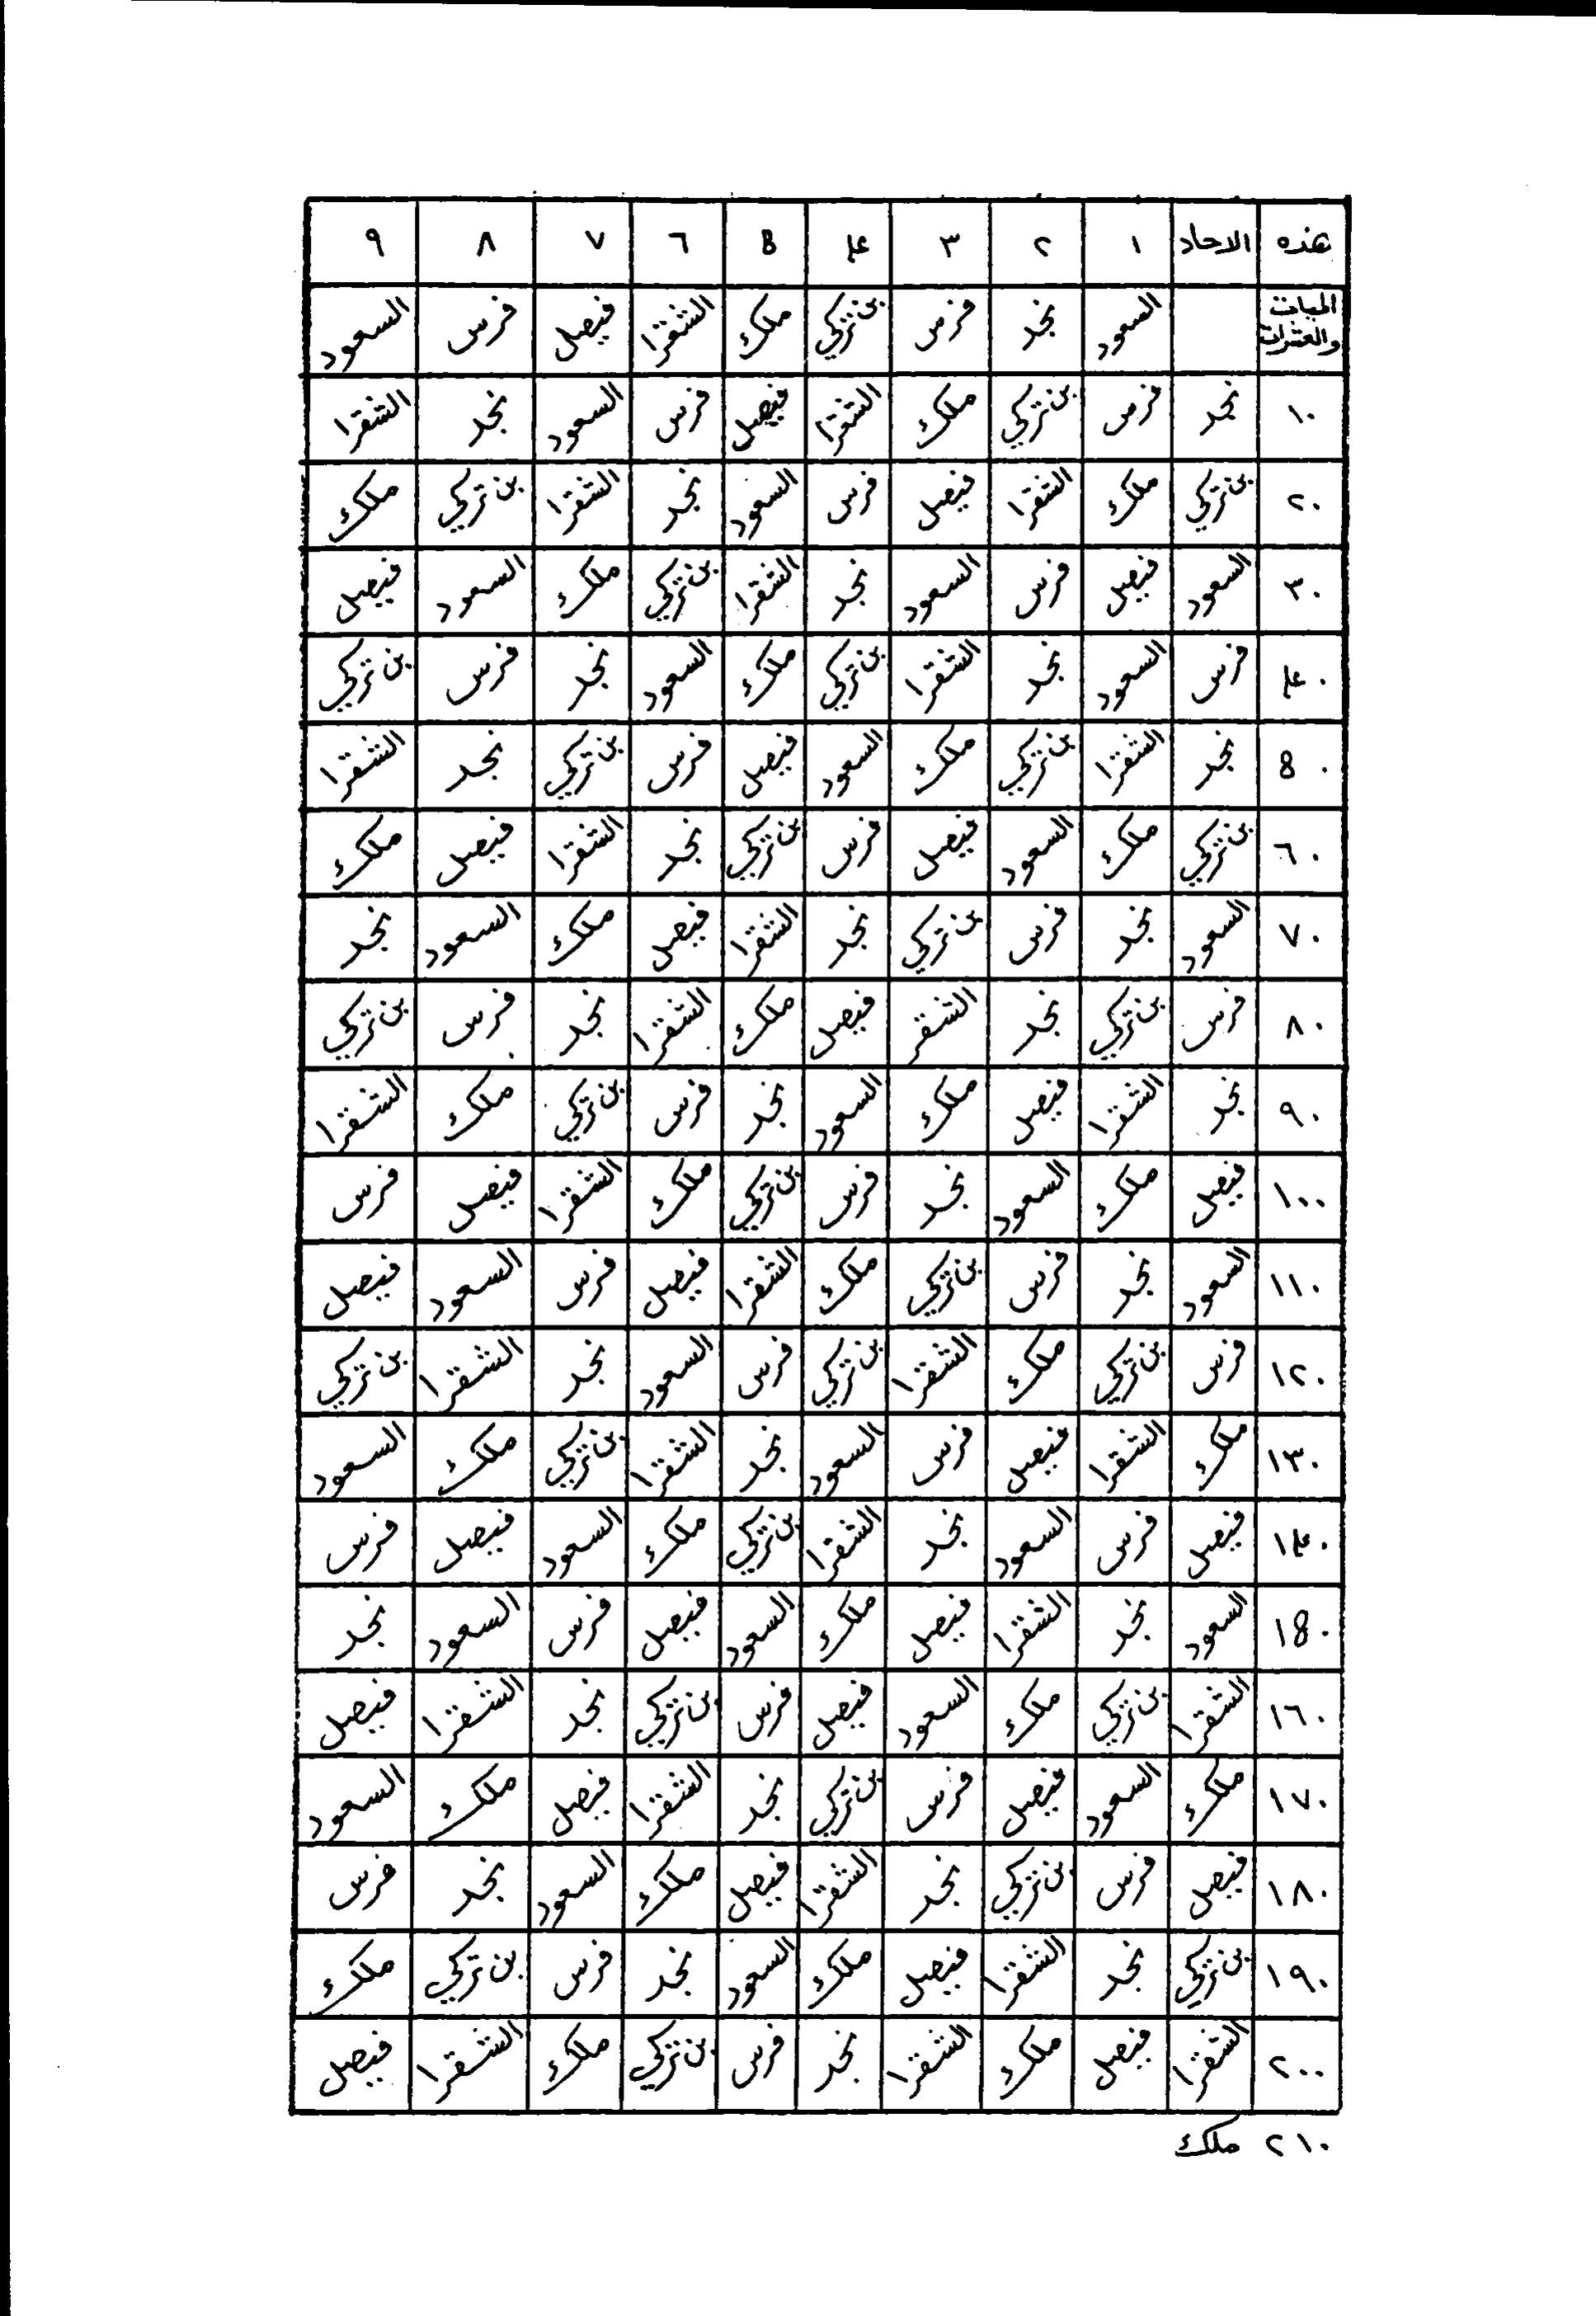 هذه الاحاد ١ ٢ ٣ ٤ 8 ٦ ٧ ٨ ٩
الميات والعشرات السعود نجد فرس بن تركي ملك الشقرا فيصل فرس السعود
١٠ نجد فرس بن تركي ملك الشقرا فيصل فرس السعود نجد الشقرا
٢٠ بن تركي ملك الشقرا فيصل فرس السعود نجد الشقرا بن تركي ملك
٣٠ السعود فيصل فرس السعود نجد الشقرا بن تركي ملك السعود فيصل
٤٠ فرس السعود نجد الشقرا بن تركي ملك السعود نجد فرس بن تركي
8٠ نجد الشقرا بن تركي ملك السعود فيصل فرس بن تركي نجد الشقرا
٦٠ بن تركي ملك السعود فيصل فرس بن تركي نجد الشقرا فيصل ملك
٧٠ السعود نجد فرس بن تركي نجد الشقرا فيصل ملك السعود نجد
٨٠ فرس بن تركي نجد الشقر فيصل ملك الشقرا نجد فرس بن تركي
٩٠ نجد الشقرا فيصل ملك السعود نجد فرس بن تركي ملك الشقرا
١٠٠ فيصل ملك السعود نجد فرس بن تركي ملك الشقرا فيصل فرس
١١٠ السعود نجد فرس بن تركي ملك الشقرا فيصل فرس السعود فيصل
١٢٠ فرس بن تركي ملك الشقرا بن تركي فرس السعود نجد الشقرا بن تركي
١٣٠ ملك الشقرا فيصل فرس السعود نجد الشقرا بن تركي ملك السعود
١٤٠ فيصل فرس السعود نجد الشقرا بن تركي ملك السعود فيصل فرس
١8٠ السعود نجد الشقرا فيصل ملك السعود فيصل فرس السعود نجد
١٦٠ الشقرا بن تركي ملك السعود فيصل فرس بن تركي نجد الشقرا فيصل
١٧٠ ملك السعود فيصل فرس بن تركي نجد الشقرا فيصل ملك السعود
١٨٠ فيصل فرس بن تركي نجد الشقرا فيصل ملك السعود نجد فرس
١٩٠ بن تركي نجد الشقرا فيصل ملك السعود نجد فرس بن تركي ملك
٢٠٠ الشقرا فيصل ملك الشقرا نجد فرس بن تركي ملك الشقرا فيصل
٢١٠ ملك